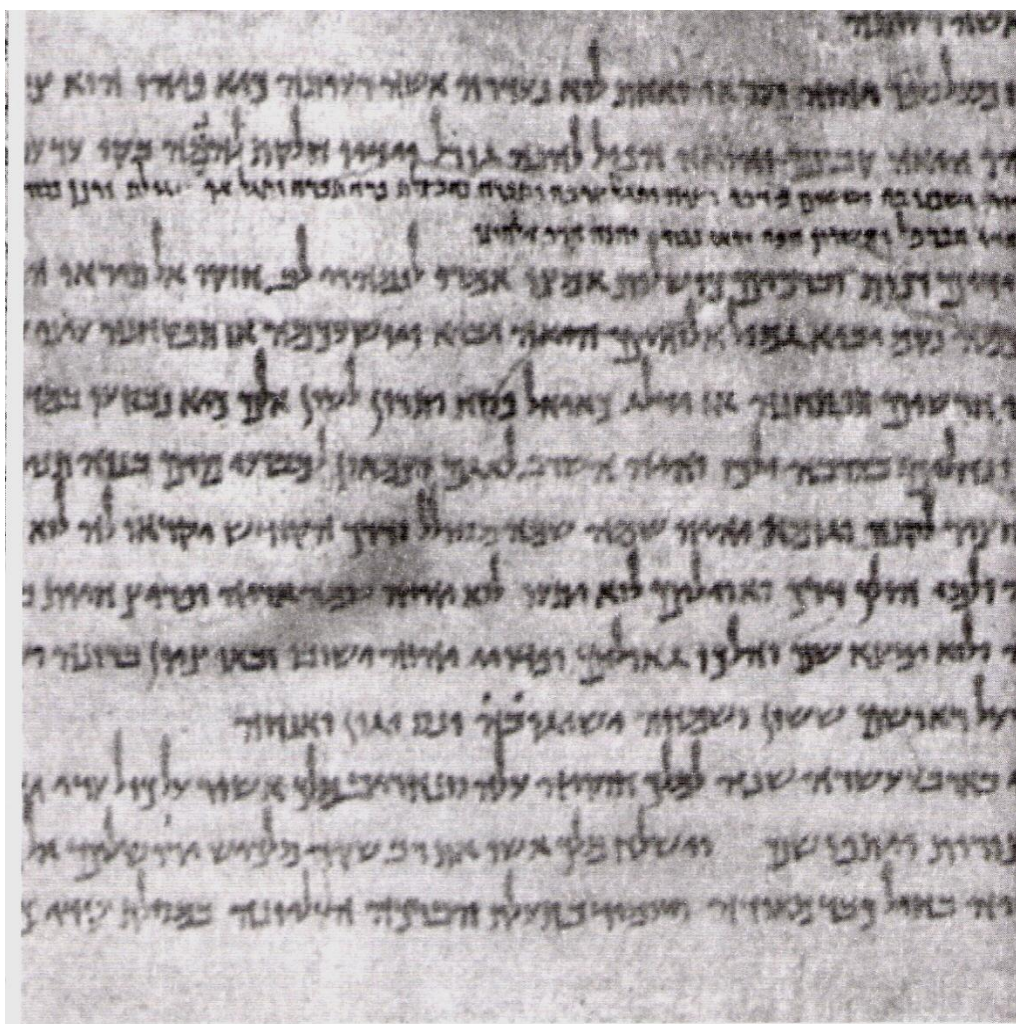 לוא נעדרה אשה רעותה כיא פיהו הוא
היאה קבצן והואה הפיל להנה גורל וידיו חלקת להמה בקו עד
ישכנו בה יששום מדבר וציה ותגל ערבה ותפרח כחבצלת פרח תפרח ותגל אף גילת ורנן
הכרמל והשרון המה יראו כבוד יהוה הדר אלוהינו
ידים רפות וברכים כושלות אמצו אמרו לנמהרי לב חזקו אל תיראו
נקם יביא גמול אלוהים הואה יביא ויושע אתכמה אז תפקחנה עיני
חרשים תפתחנה אז ידלג כאיל פסח ותרון לשון אלם כיא נבקעו
ונחלים בערבה ילכו והיה השרב לאגם וצמאון למבועי מים בנוה
לקנה וגומא והיה שמה שמה מסלול ודרך הקודש יקראו לה לוא
הולך דרך ואוילים לוא יתעו לוא יהיה שמה אריה ופריץ חיות
ולוא ימצא שם והלכו גאולים ופדויי יהוה ישובו ובאו ציון ברונה
רואשם ששון ושמחה ישיגו בה ונס יגון ואנחה
בארבע עשרא שנה למלך חוזקיה עלה סנחריב מלך אשור על כול ערי
ויתפושם וישלח מלך אשור את רב שקה מלכיש ירושלים אל
כבד מואדה ויעמוד בתעלת הברכה העליונה במסלת